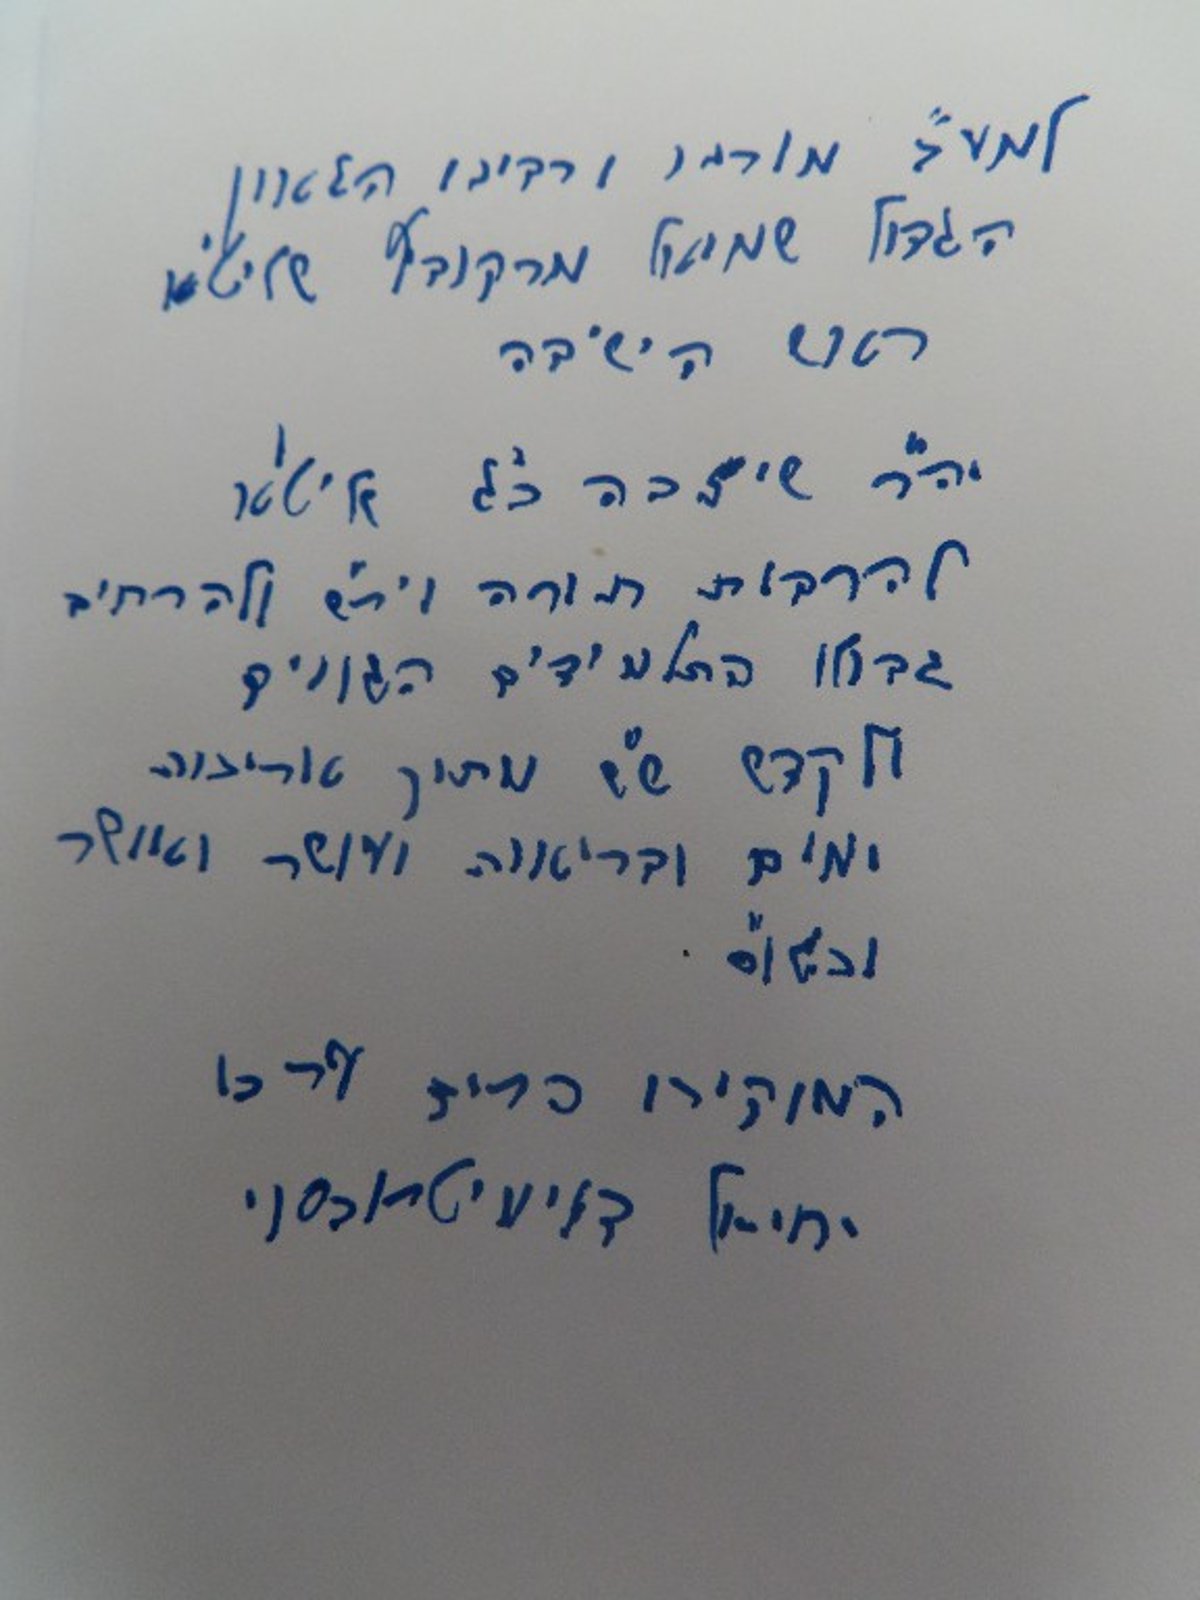 למע"כ מורנו ורבינו הגאון
הגדול שמואל מרקוביץ שליט"א
ראש הישיבה
יה"ר שיזכה כ"ג אליט"א
להרבות תורה וי"ש ולהרחיב
גבולו בתלמידים הגונים
לקדש ש"ש מתוך אריכות
ימים ובריאות ועושר ואושר
וכט"ס
המוקירו כרום ערכו
יחיאל